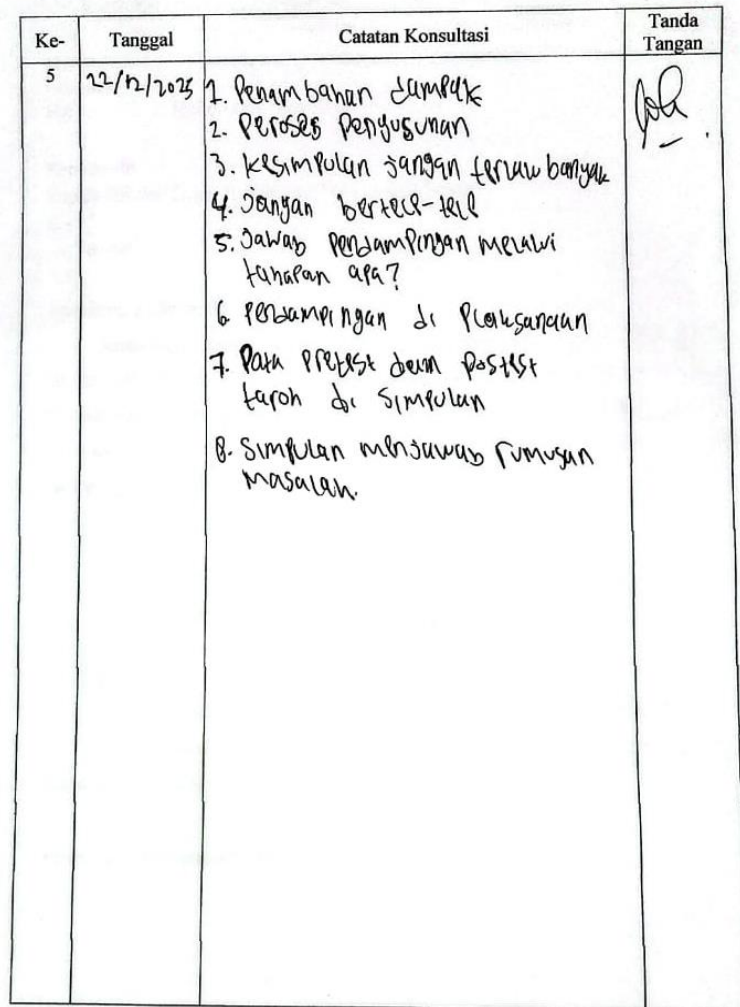 Ke- Tanggal Catatan Konsultasi Tanda Tangan
5 22/12/2025 1. Penambahan dampak
2. Peroses Penyusunan
3. Kesimpulan jangan terlalu banyak
4. Jangan bertele-tele
5. Jawab pendampingan melalui
tahapan apa?
6 Pendampingan di Plaksanaan
7. Data Pretest dan Postest
taroh di Simpulan
8. Simpulan menjawab rumusan
masalah.